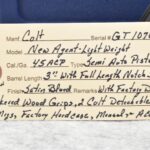 Mfr. Colt Serial GT10
Model New Agent-Light Weight
Cal. .45 ACP Type Semi Auto Pisto
Barrel Length 3" With Full Length Notch
Finish Satin Black With Factory
Wood Grips, 2 Colt Detachable
Mgs, Factory Hardcase, Manual & AC